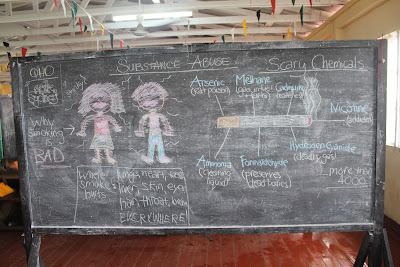 SUBSTANCE ABUSE
SCARY CHEMICALS
WHO
Why
smoking is
BAD
Arsenic
(rat poison)
Methane
Cadmium
Nicotine
Hydrogen Cyanide
(deadly gas)
Ammonia
(cleaning
liquid)
Formaldehyde
(preserves
dead bodies)
...more than
4000
Where
smoke
hurts
lungs, heart,
liver, skin, eye
hair, throat,
EVERYWHERE